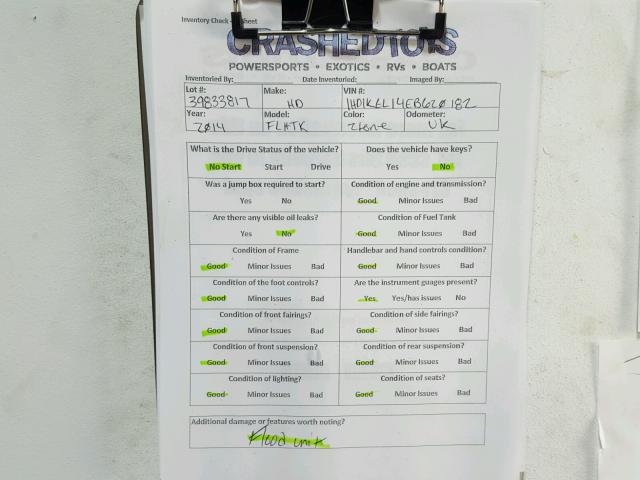 Inventory Check - Sheet
CRASHEDTOYS
POWERSPORTS • EXOTICS • RVs • BOATS
Inventoried By: Date Inventoried: Imaged By:
Lot #: Make: VIN #:
39833817 HD 1HD1KEL14EB620182
Year: Model: Color: Odometer:
2014 FLHTK 2tone UK
What is the Drive Status of the vehicle? Does the vehicle have keys?
No Start Start Drive Yes No
Was a jump box required to start? Condition of engine and transmission?
Yes No Good Minor Issues Bad
Are there any visible oil leaks? Condition of Fuel Tank
Yes No Good Minor Issues Bad
Condition of Frame Handlebar and hand controls condition?
Good Minor Issues Bad Good Minor Issues Bad
Condition of the foot controls? Are the instrument guages present?
Good Minor Issues Bad Yes Yes/has issues No
Condition of front fairings? Condition of side fairings?
Good Minor Issues Bad Good Minor Issues Bad
Condition of front suspension? Condition of rear suspension?
Good Minor Issues Bad Good Minor Issues Bad
Condition of lighting? Condition of seats?
Good Minor Issues Bad Good Minor Issues Bad
Additional damage or features worth noting?
flood unit